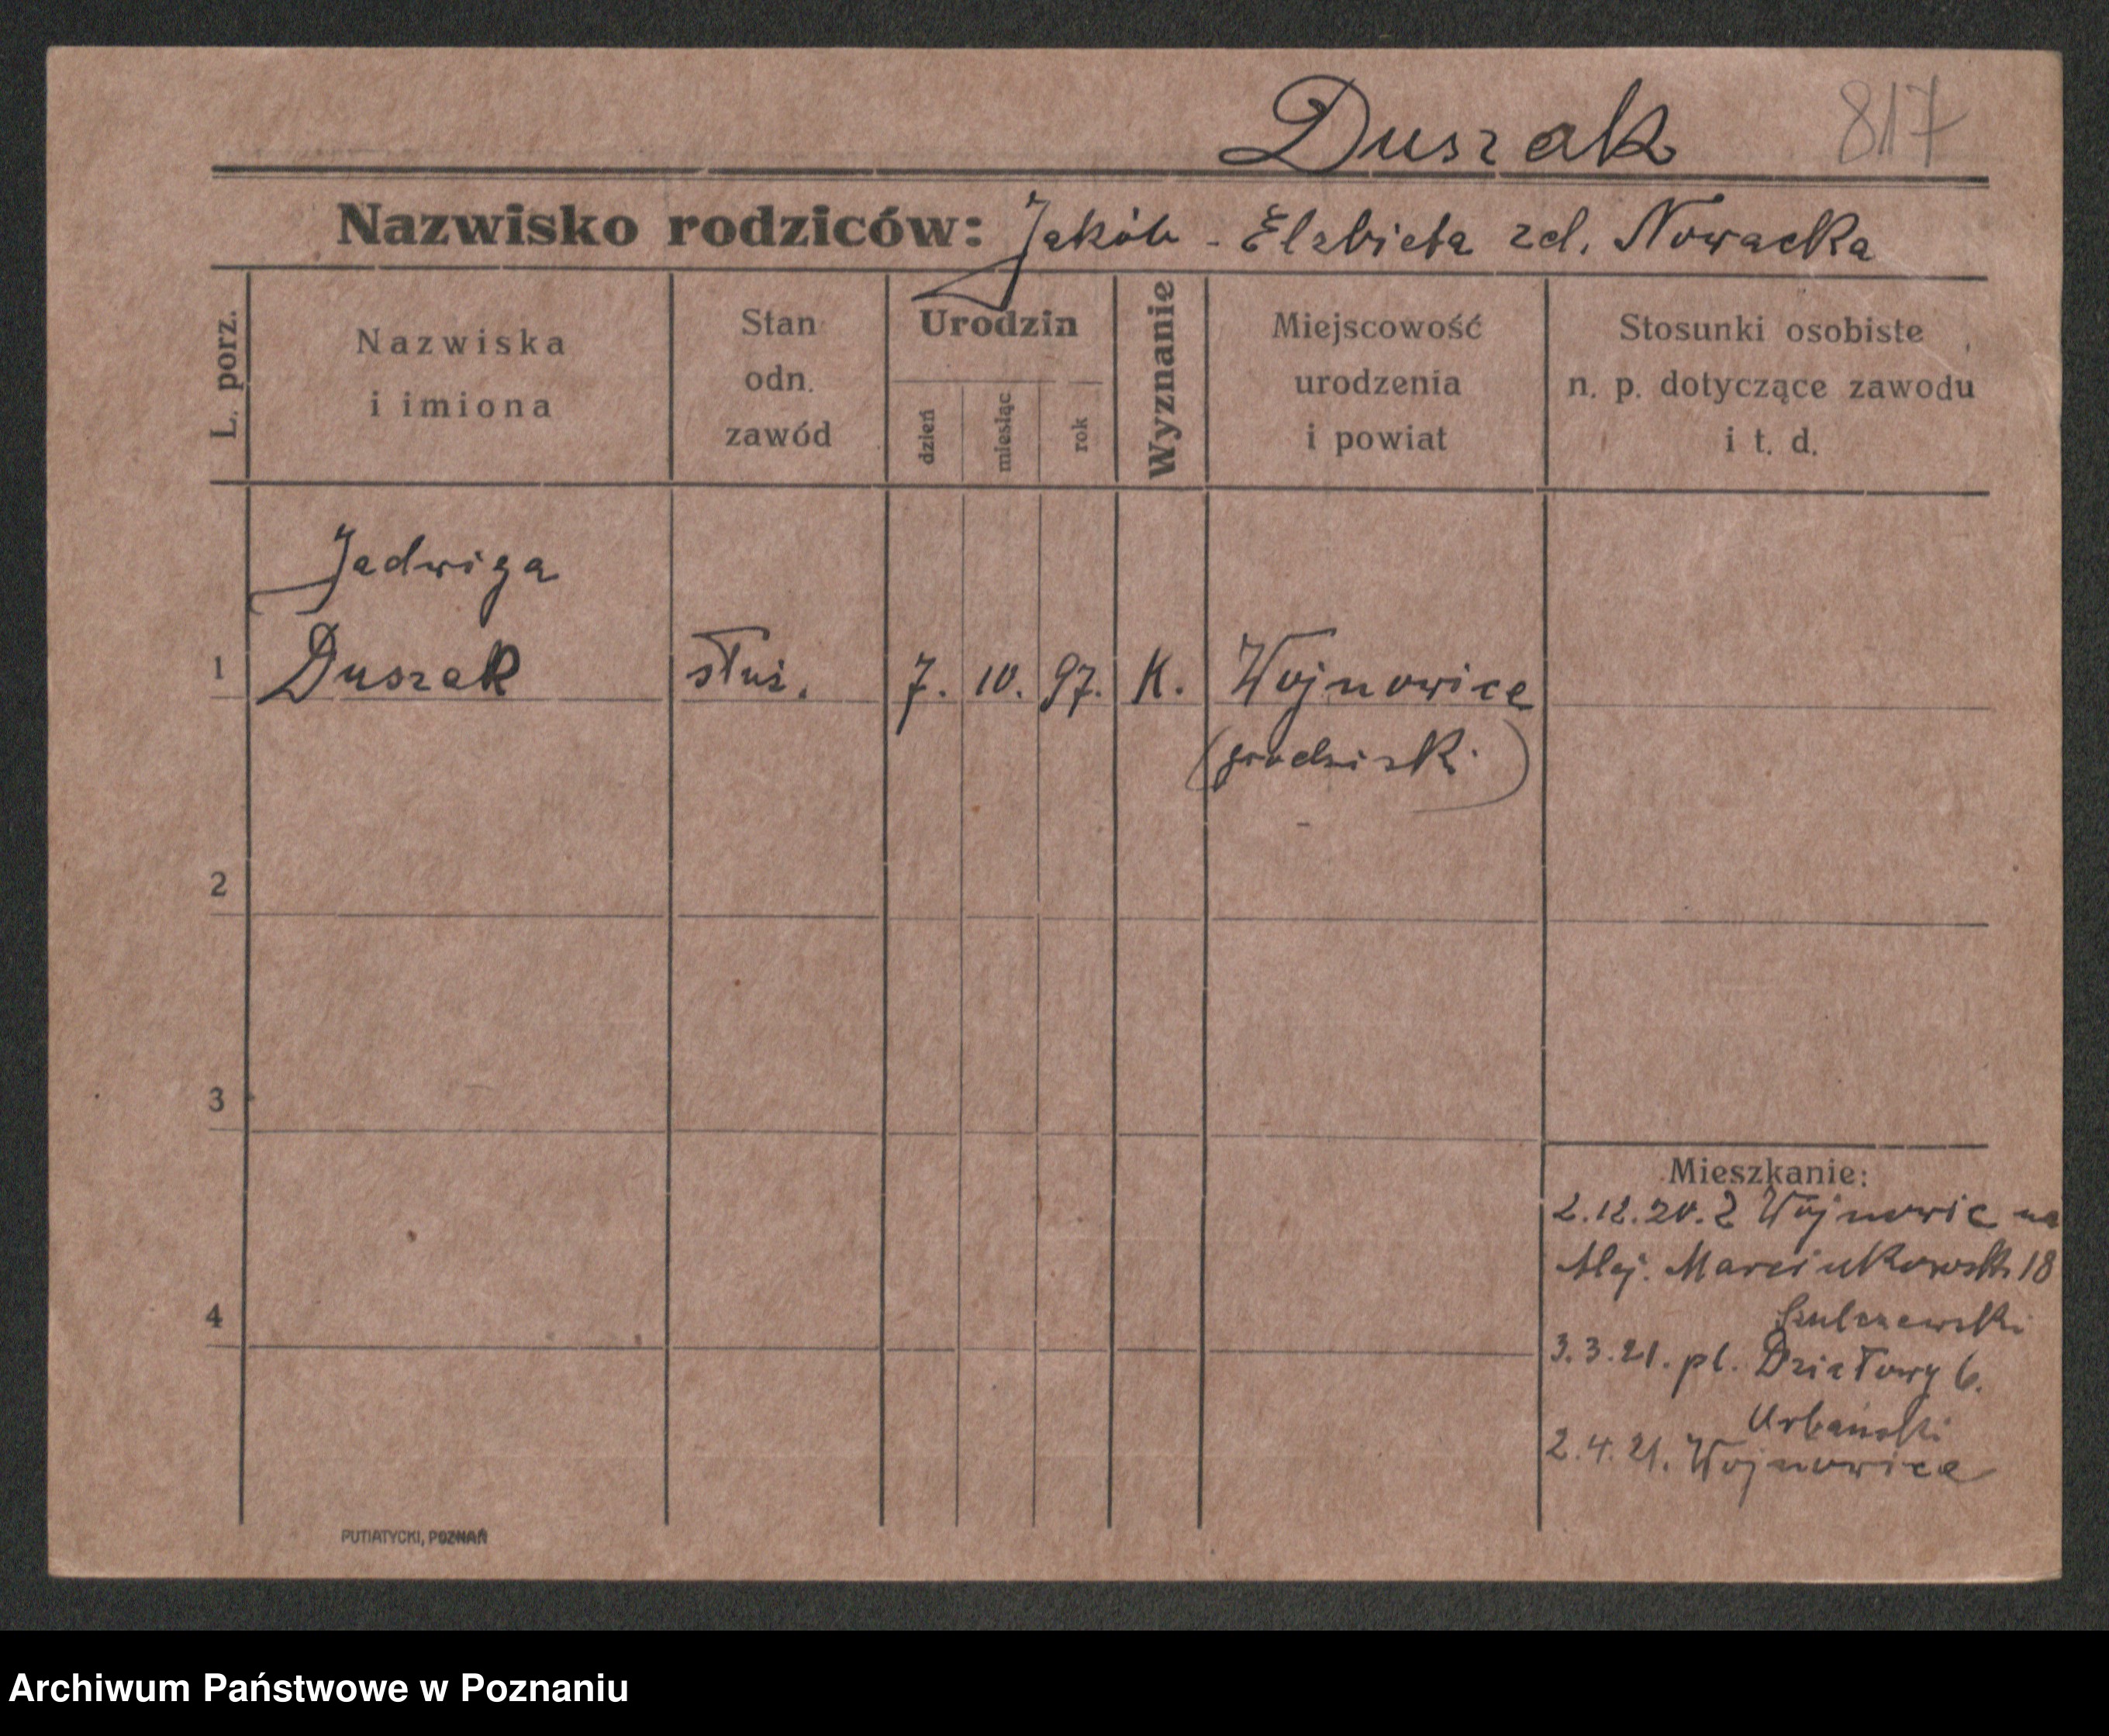 Duszak 817
Nazwisko rodziców: Jakób - Elzbieta zd. Nowacka
L. porz.
Nazwiska
i imiona
Stan
odn.
zawód
Urodzin
dzień
miesiąc
rok
Wyznanie
Miejscowość
urodzenia
i powiat
Stosunki osobiste
n. p. dotyczące zawodu
i t. d.
Jadwiga
1 Duszak służ. 7. 10. 97. K. Wojnowice
(grodziski)
2
3
4
Mieszkanie:
2.12.20. Z Wojnowic na
Alej. Marcinkowsk 18
Szulczewski
3.3.21. pl. Działowy 6.
Urbański
2.4.21. Wojnowice
PUTIATYCKI, POZNAŃ
Archiwum Państwowe w Poznaniu